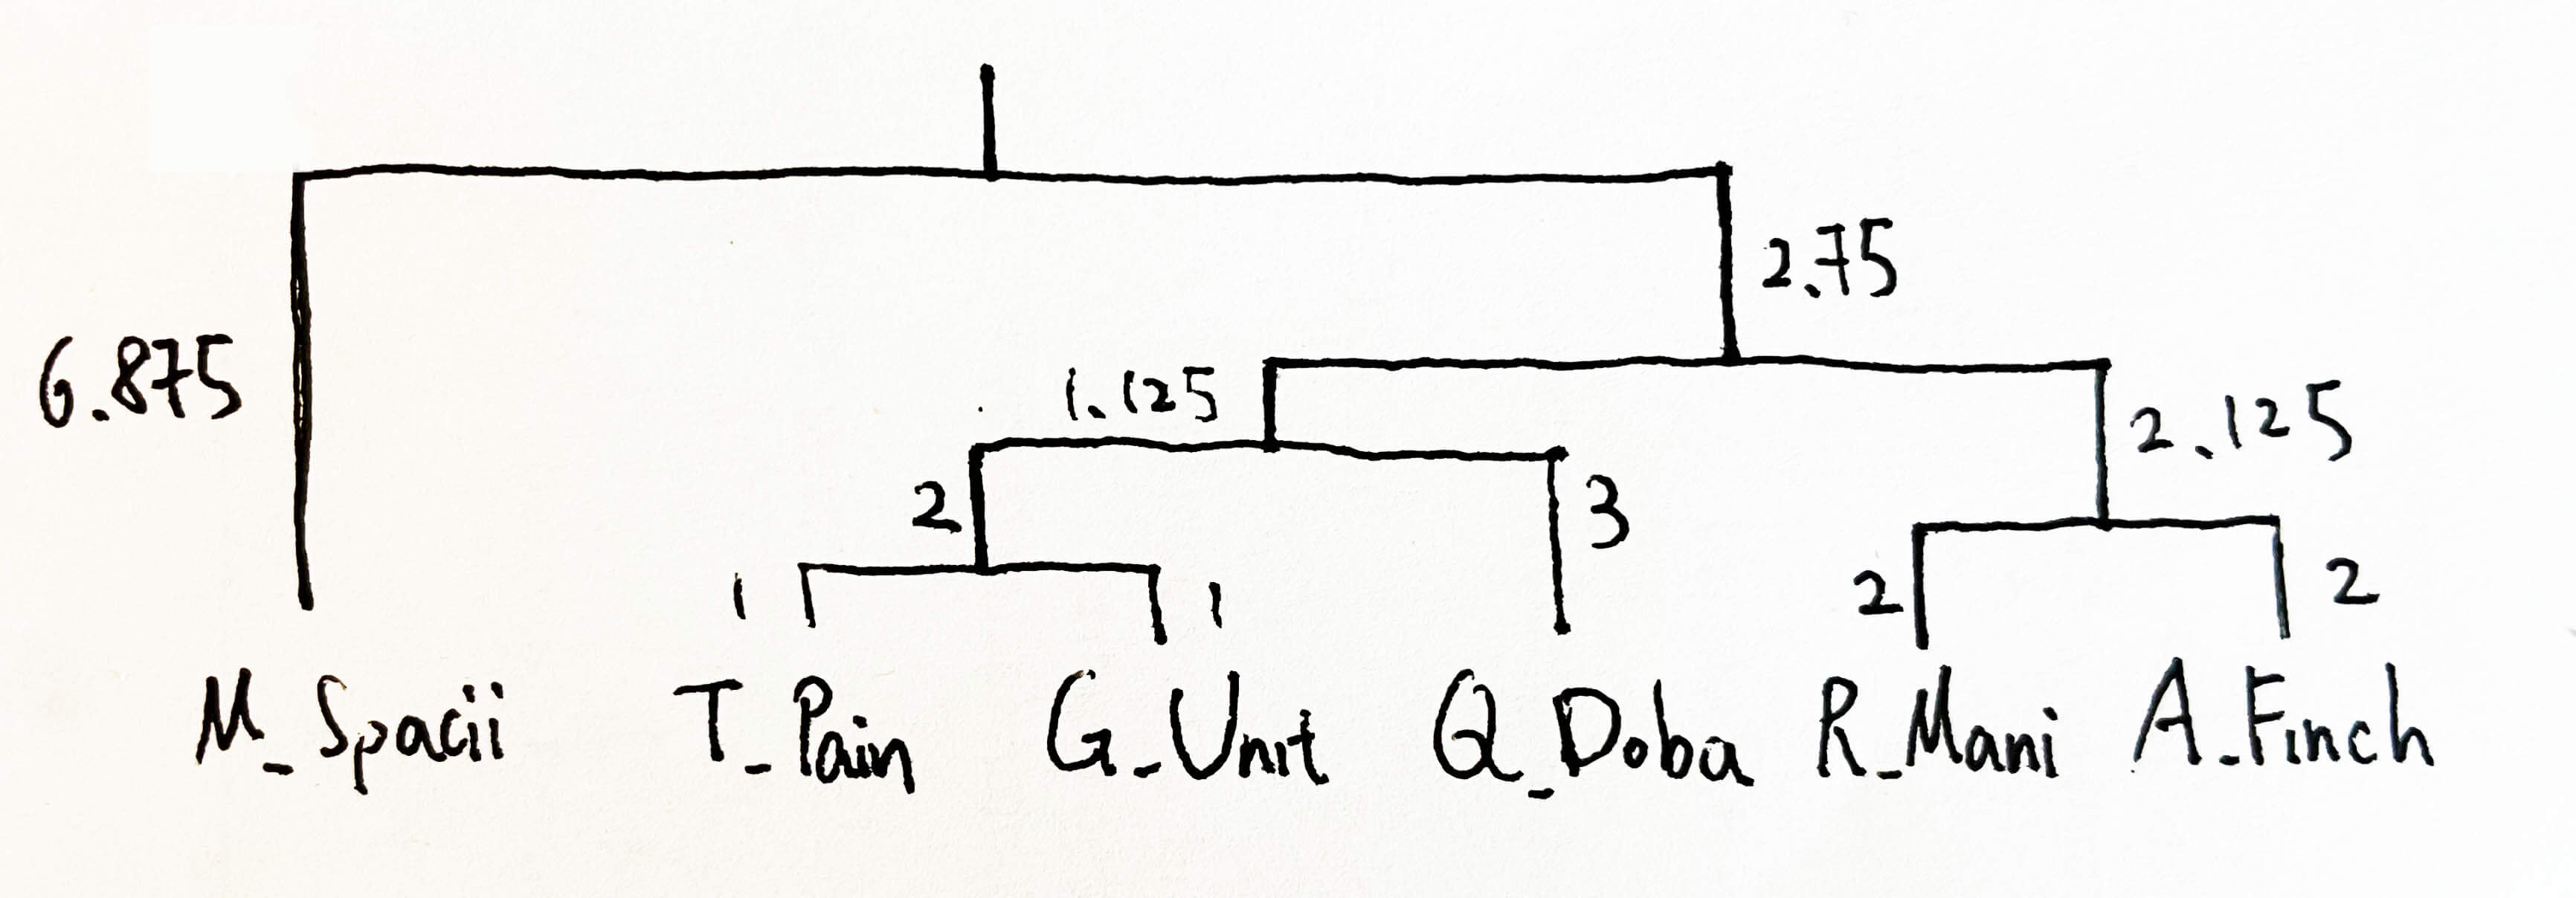 2.75
6.875
1.125
2.125
2
3
1
1
2
2
M_Spacii T_Pain G_Unit Q_Doba R_Mani A_Finch